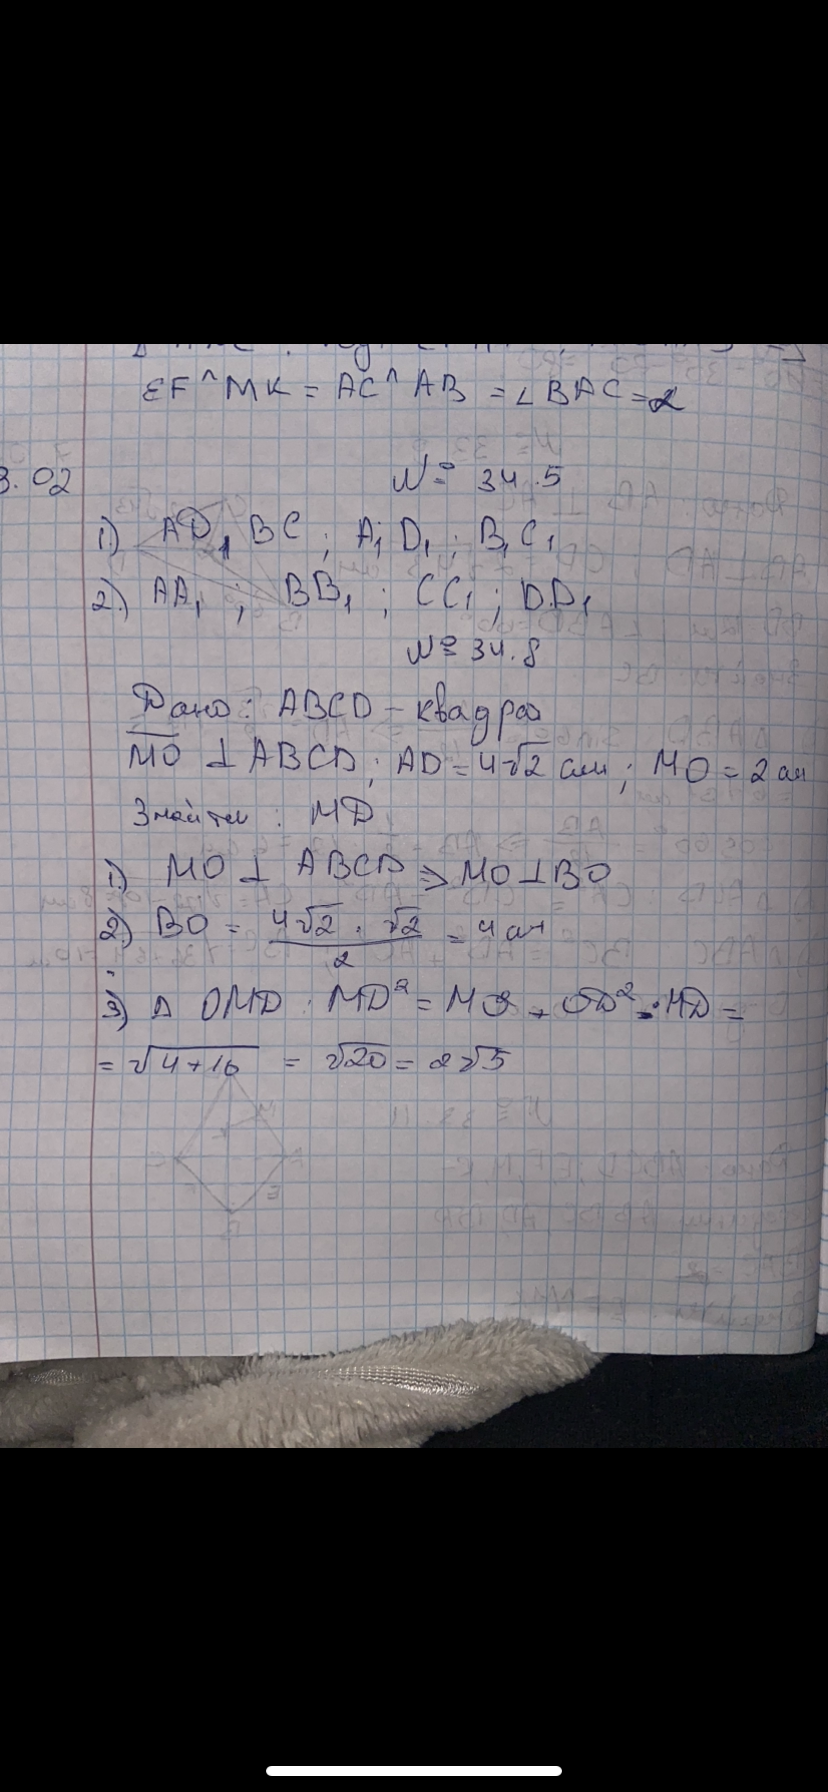 EF^MK = AC^AB = ∠BAC = α
3.02
№ 34.5
1) AD, BC ; A₁D₁ ; B₁C₁
2) AA₁ ; BB₁ ; CC₁ ; DD₁
№ 34.8
Дано: ABCD - квадра
MO ⊥ ABCD ; AD = 4√2 см ; MO = 2 см
Знайти : MD
1) MO ⊥ ABCD ⇒ MO ⊥ BO
2) BO = 4√2 · √2 / 2 = 4 см
3) Δ OMD : MD² = MO² + OD² ; MD =
= √4+16 = √20 = 2√5